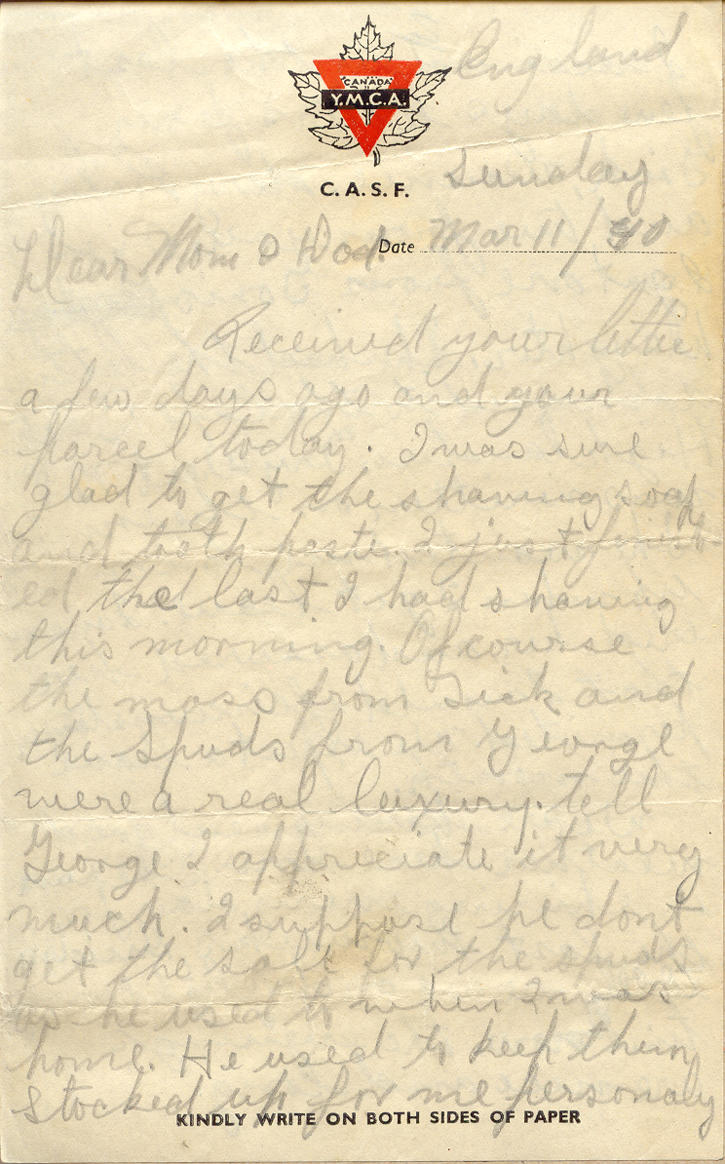 England
CANADA
Y.M.C.A.
C. A. S. F.
Sunday
Date Mar 11/40
Dear Mom & Dad.
Received your letter
a few days ago and your
parcel today. I was sure
glad to get the shaving soap
and tooth paste. I just finish
ed the last I had shaving
this morning. Of course
the mass from Dick and
the Spuds from George
were a real luxury. tell
George I appreciate it very
much. I suppose he dont
get the salt for the spuds
as he used to when I was
home. He used to keep them
stocked up for me personaly
KINDLY WRITE ON BOTH SIDES OF PAPER